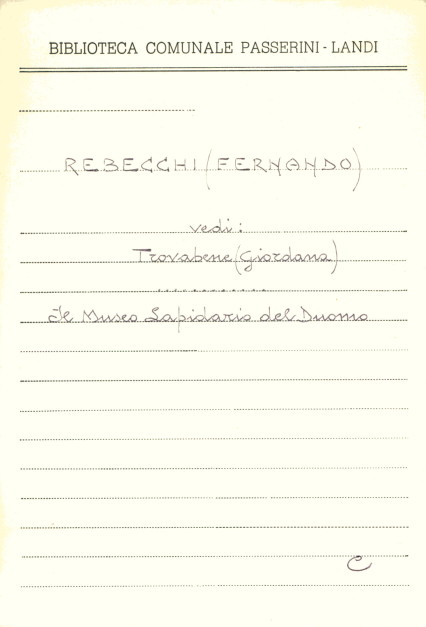 BIBLIOTECA COMUNALE PASSERINI - LANDI
REBECCHI (FERNANDO)
vedi:
Trovabene (Giordana)
...........
Il Museo Lapidario del Duomo
C